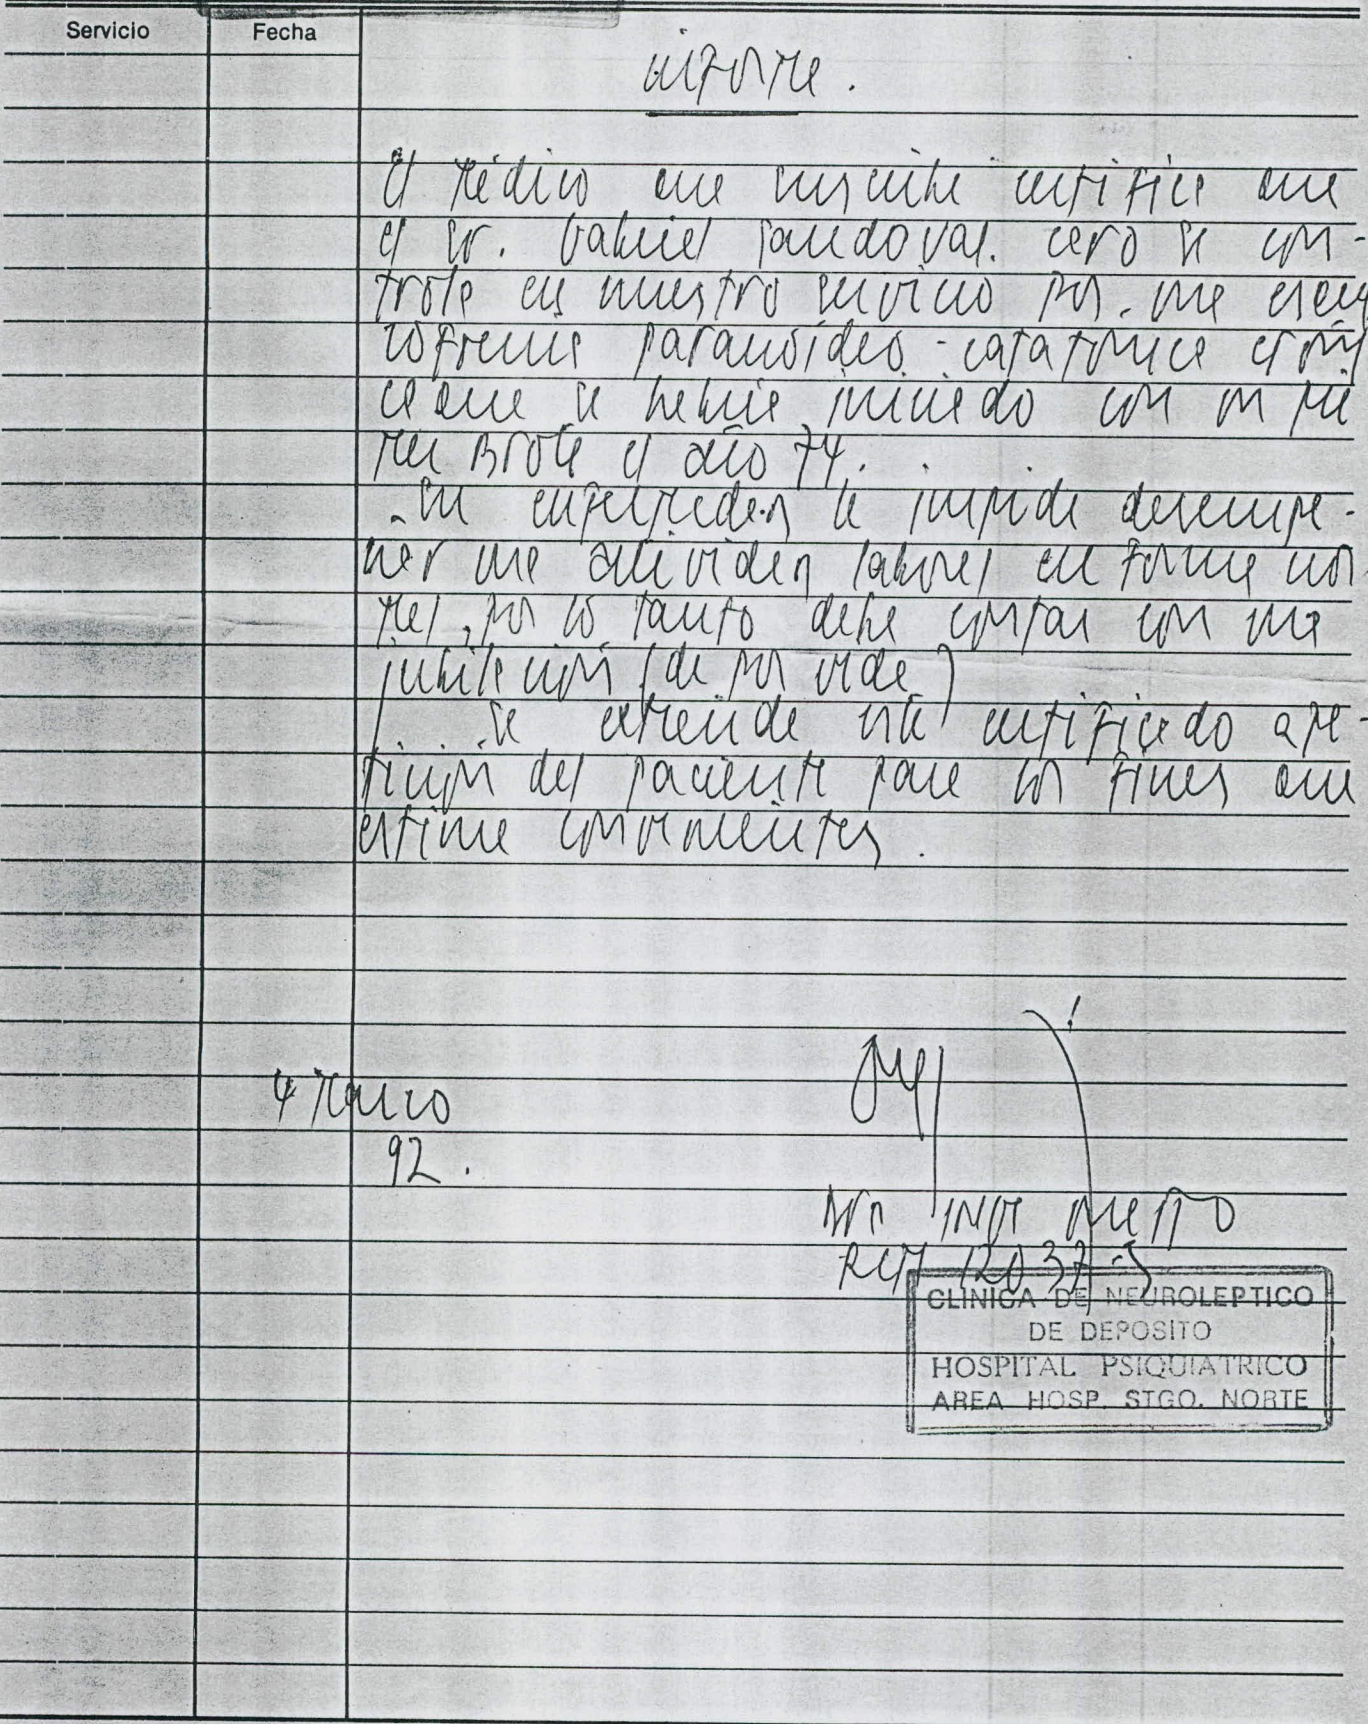 Servicio Fecha
informe.
El médico que suscribe certifica que
el sr. Gabriel Sandoval. Cero se con-
trola en nuestro servicio por una esqui
zofrenia paranoídea - catatónica cróni
ca que se había iniciado con un pri
mer Brote el año 74.
Su enfermedad le impide desempe-
ñar una actividad laboral en forma nor
mal, por lo tanto debe contar con una
jubilación (de por vida)
Se extiende este certificado a pe-
tición del paciente para los fines que
estime convenientes.
4 Marzo
92.
CLINICA DE NEUROLEPTICO
DE DEPOSITO
HOSPITAL PSIQUIATRICO
AREA HOSP. STGO. NORTE